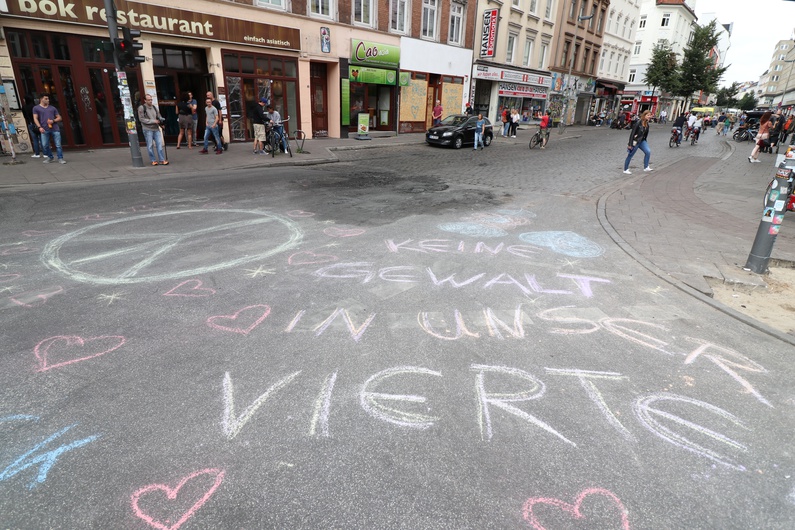 bok restaurant
einfach asiatisch
HANSEN
Cab
KEINE
GEWALT
IN UNSER
VIERTE